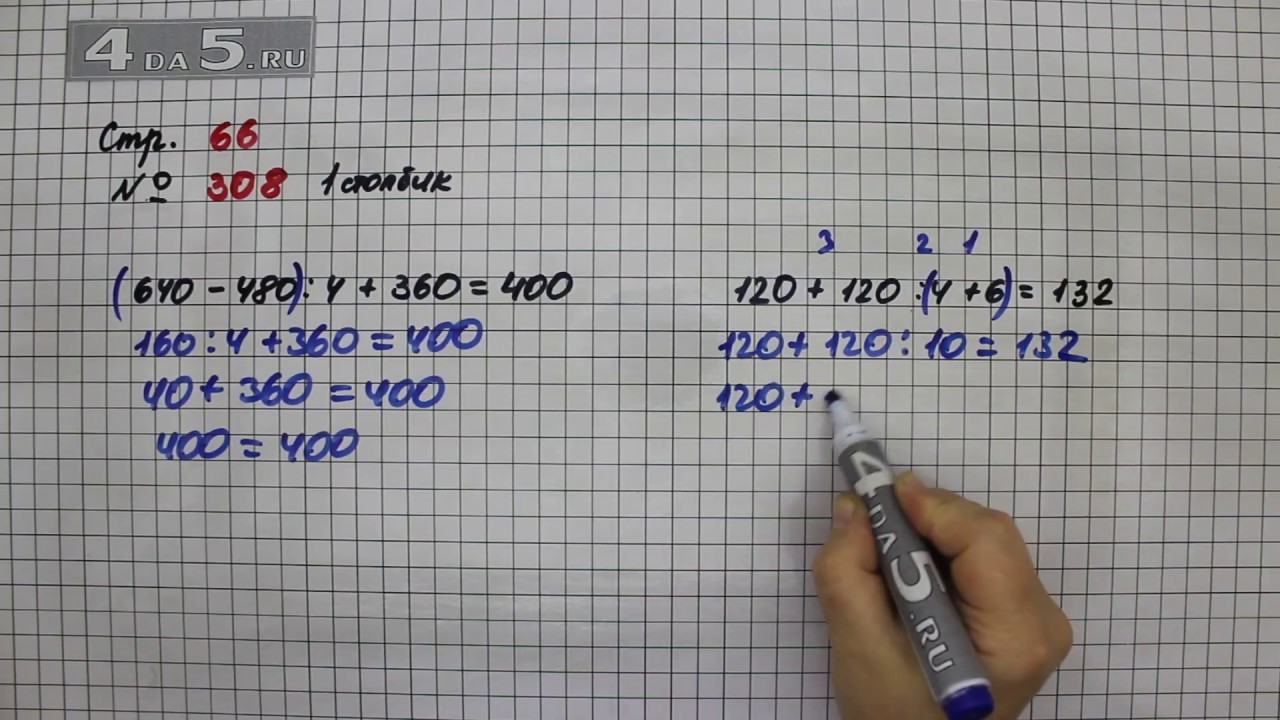 4DA5.RU
Стр. 66
№ 308 1 столбик
(640 - 480) : 4 + 360 = 400
160 : 4 + 360 = 400
40 + 360 = 400
400 = 400
3 2 1
120 + 120 : (4 + 6) = 132
120 + 120 : 10 = 132
120 +
4DA5.RU